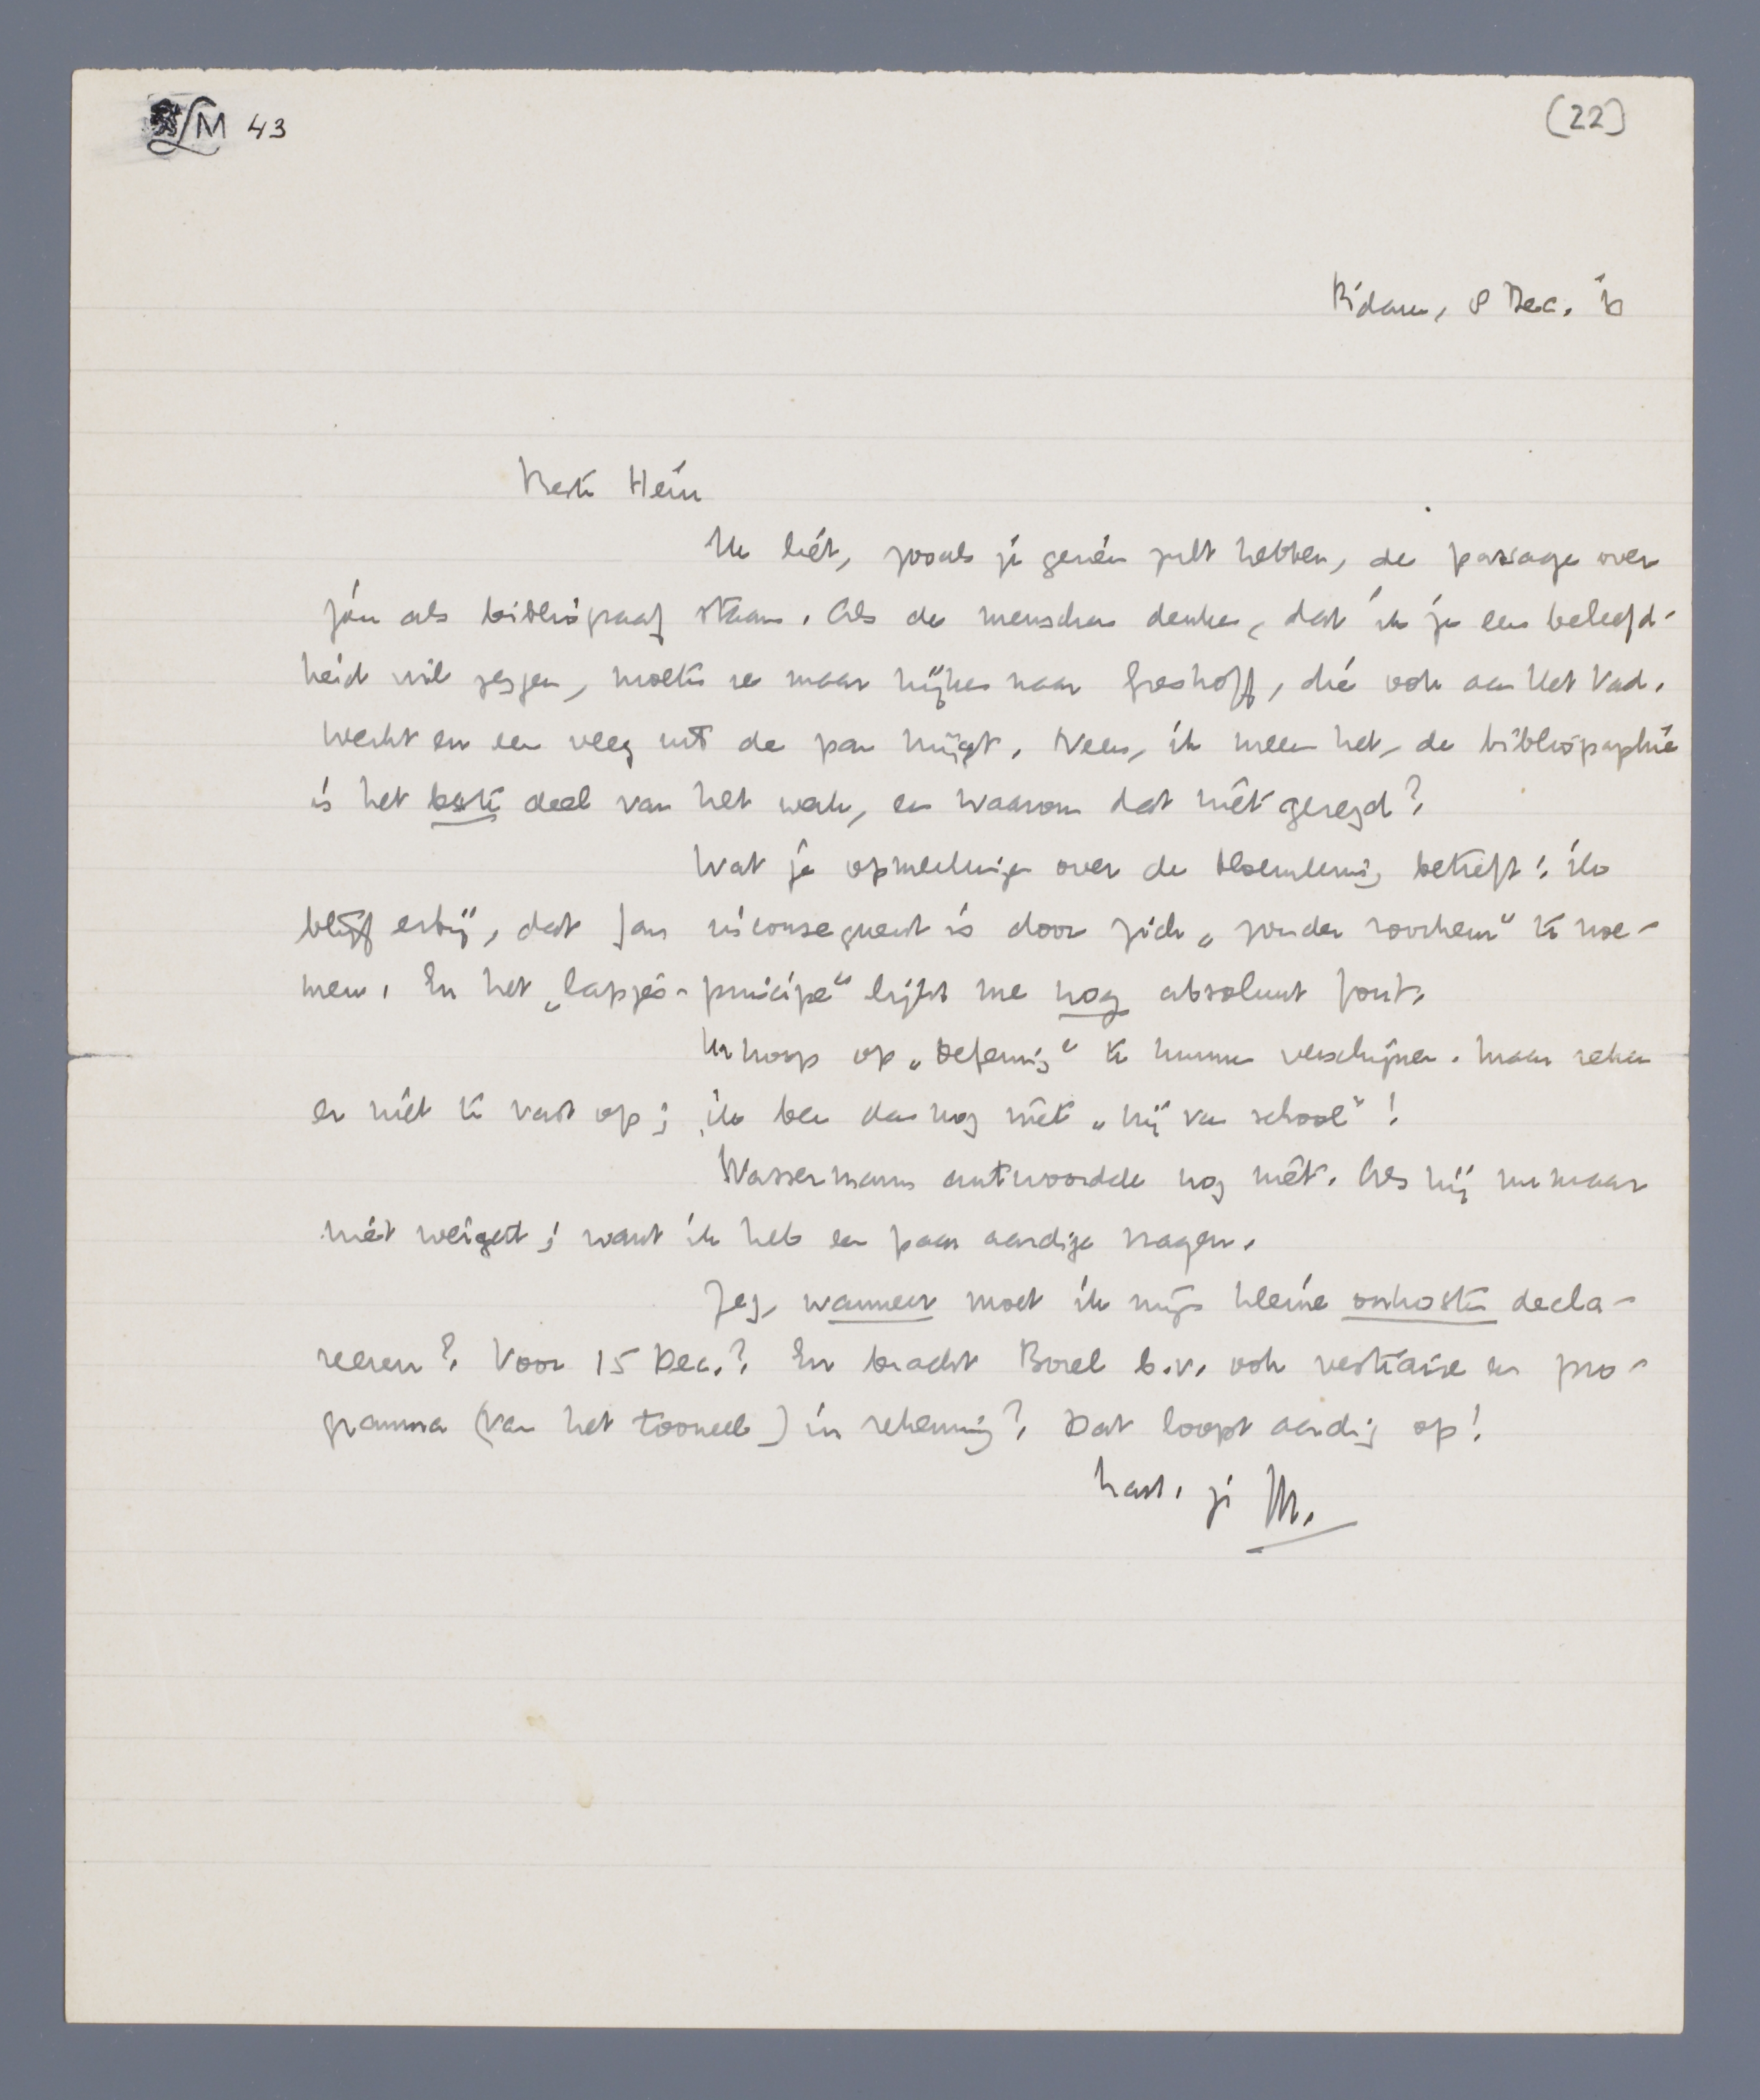 LM 43
(22)
R'dam, 8 Dec. '33
Beste Hein
Ik liet, zooals je gezien zult hebben, de passage over
jóu als bibliograaf staan. Als de menschen denken, dat ik je een beleefd-
heid wil zeggen, moeten ze maar kijken naar Greshoff, die ook aan Het Vad.
werkt en een veeg uit de pan krijgt. Neen, ik meen het, de bibliographie
is het beste deel van het werk, en waarom dat niet gezegd?
Wat je opmerkingen over de bloemlezing betreft: ik
blijf erbij, dat Jan inconsequent is door zich „zonder voorkeur" te noe-
men. En het „lapjes-principe" lijkt me nog absoluut fout.
Ik hoop op „Oefening" te kunnen verschijnen. Maar reken
er niet te vast op; ik ben dan nog niet „vrij van school"!
Wassermann antwoordde nog niet. Als hij nu maar
niet weigert; want ik heb een paar aardige vragen.
Zeg, wanneer moet ik mijn kleine onkosten decla-
reeren? Voor 15 Dec.? En bracht Borel b.v. ook vestiaire en pro-
gramma (van het tooneel) in rekening? Dat loopt aardig op!
Hart. je M.